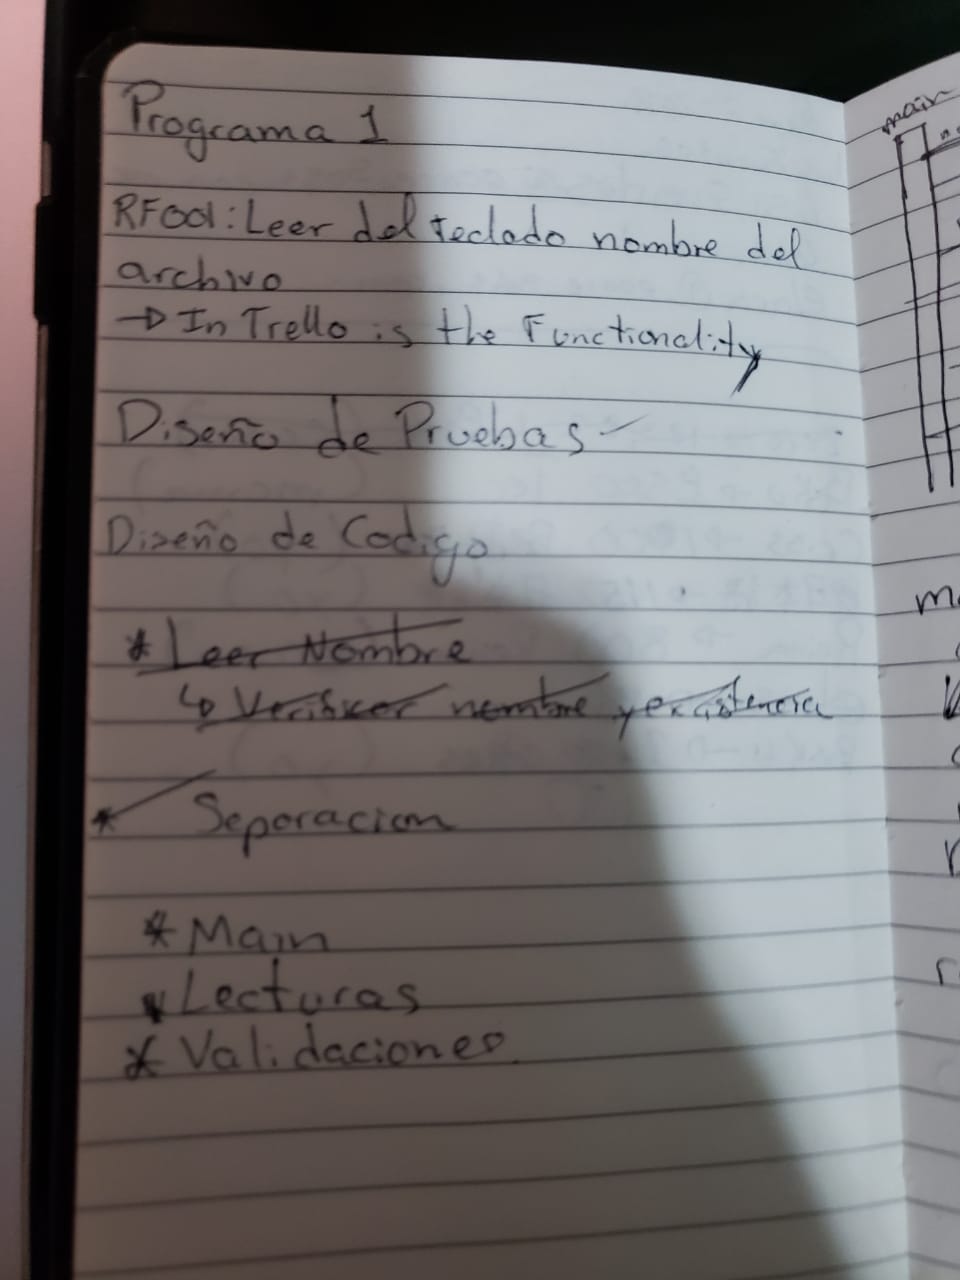 Programa 1
RF001: Leer del teclado nombre del
archivo
→ In Trello is the Functionality
Diseño de Pruebas ✓
Diseño de Codigo
* Leer Nombre
↳ Verificar nombre y existencia
* Separacion
* Main
* Lecturas
* Validaciones
main